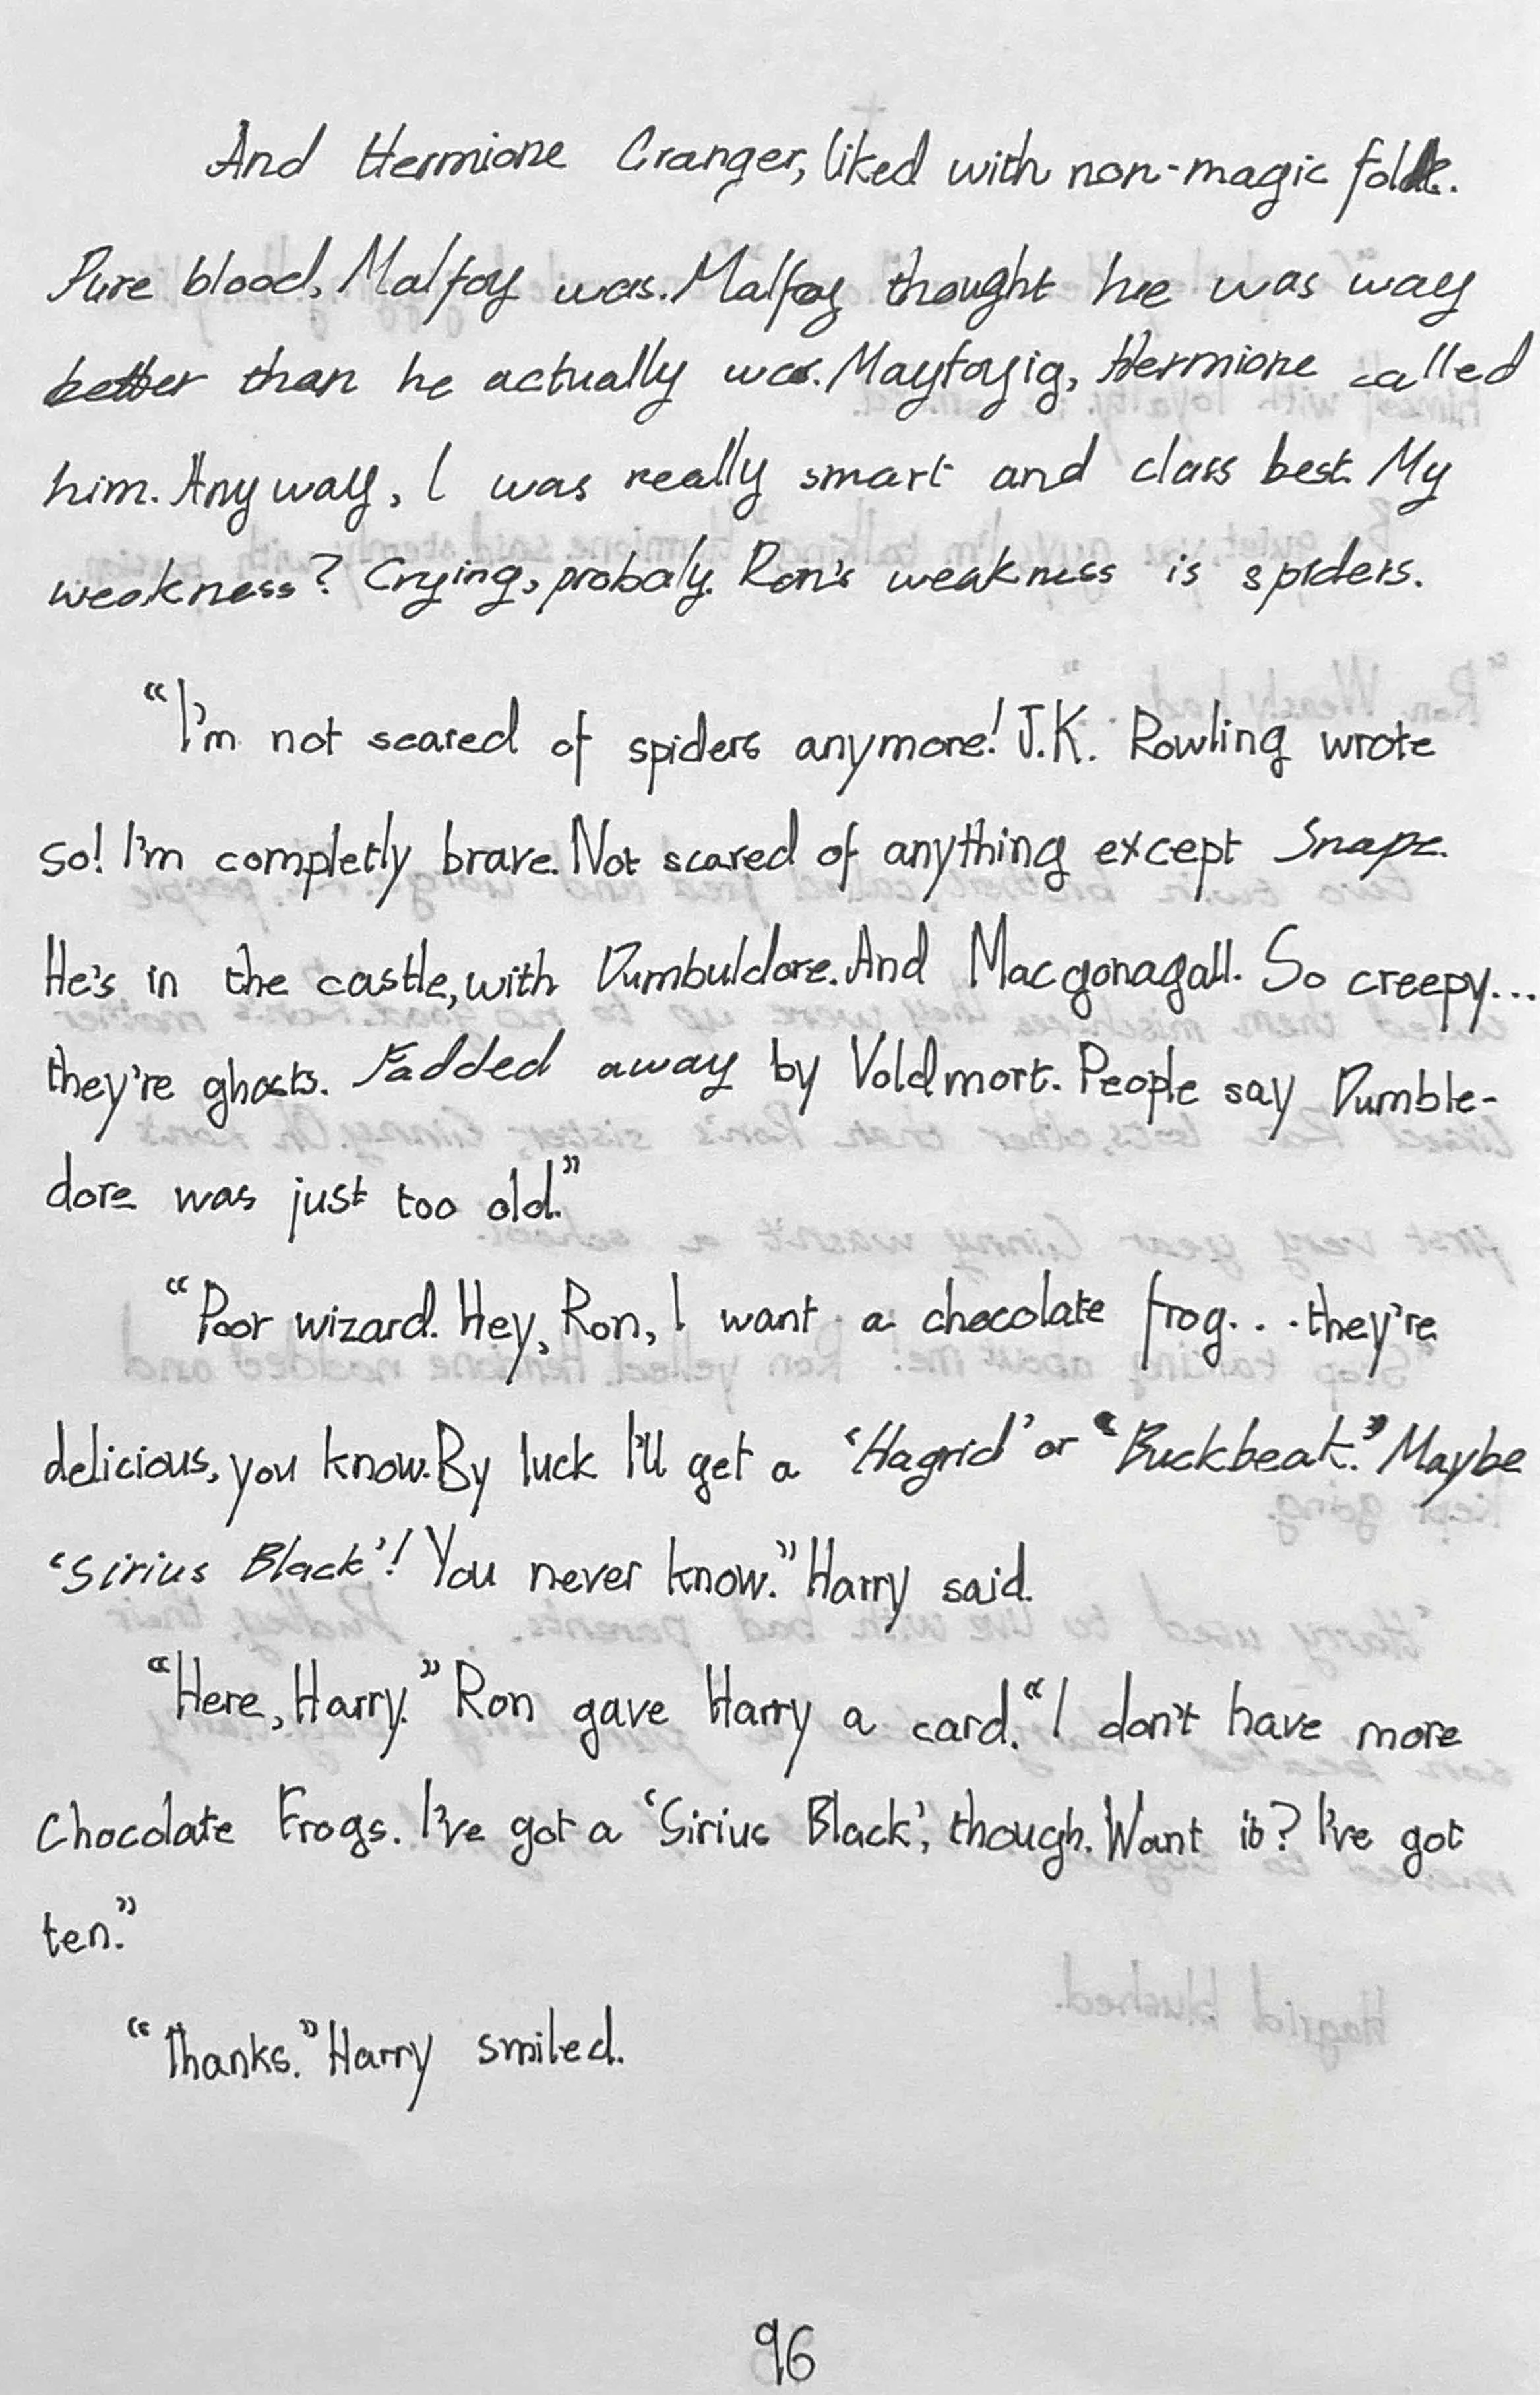 And Hermione Granger, liked with non-magic folk.
Pure blood, Malfoy was. Malfoy thought he was way
better than he actually was. Mayfoyig, Hermione called
him. Anyway, I was really smart and class best. My
weakness? Crying, probaly. Ron's weakness is spiders.
“I'm not scared of spiders anymore! J.K. Rowling wrote
so! I'm completly brave. Not scared of anything except Snape.
He's in the castle, with Dumbuldore. And Macgonagall. So creepy...
they're ghosts. Fadded away by Voldmort. People say Dumble-
dore was just too old.”
“Poor wizard. Hey, Ron, I want a chocolate frog... they're
delicious, you know. By luck I'll get a ‘Hagrid’ or “Buckbeak.” Maybe
‘Sirius Black’! You never know.” Harry said.
“Here, Harry.” Ron gave Harry a card. “I don't have more
Chocolate Frogs. I've got a ‘Sirius Black’, though. Want it? I've got
ten.”
“Thanks.” Harry smiled.
96